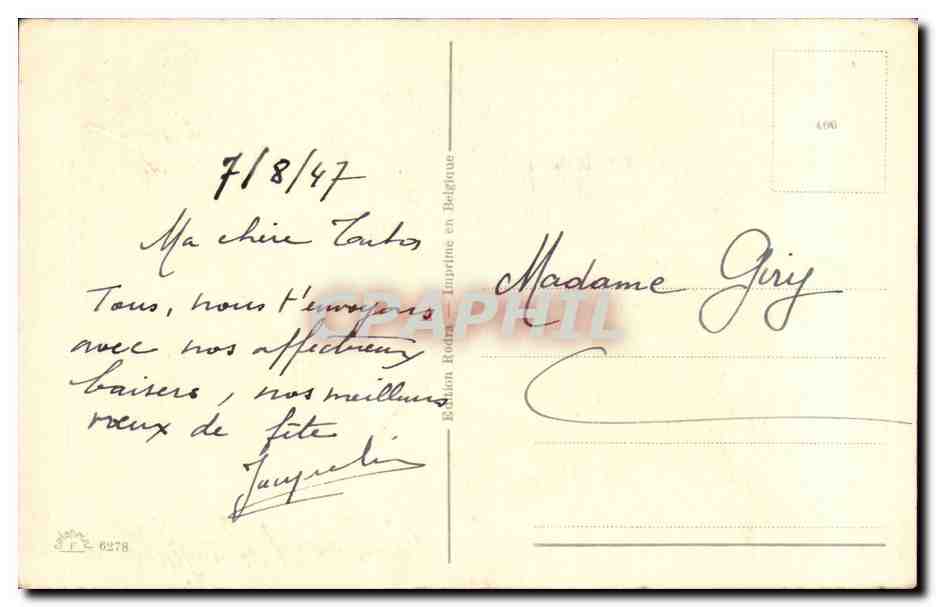 7/8/47
Ma chère
Tous, nous t'envoyons
avec nos affectueux
baisers, nos meilleurs
vœux de fête
Jacqueline
6278
Edition Rodra — Imprimé en Belgique
406
Madame Giry
CPAPHIL